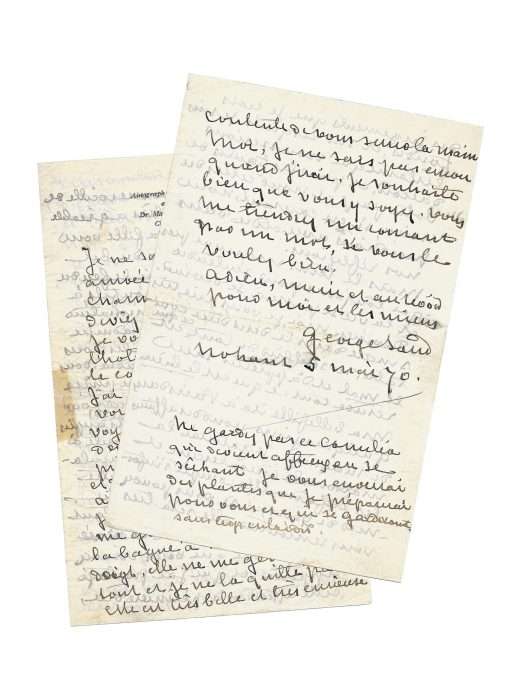 contente de vous serrer la main
moi, je ne sais pas encore
quand j'irai. Je souhaite
bien que vous y soyez. vous
me tiendrez au courant
par un mot, si vous le
voulez bien.
adieu, merci et au revoir
pour moi et les miens
George Sand
Nohant 5 mai 70.
Ne gardez pas ce camelia
qui devient affreux en se
séchant. je vous enverrai
des plantes que je préparerai
pour vous et qui se garderont
sans trop enlaidir
Autograph
Dr. Ma
Je ne sa
arrivée
cham
d'vie
je vo
l'hot
le co
j'ai
vou
voy
de
p
et
à
me g
la bague à
doigt, elle ne me g
tout et je ne la quitte pa
elle est très belle et très curieuse